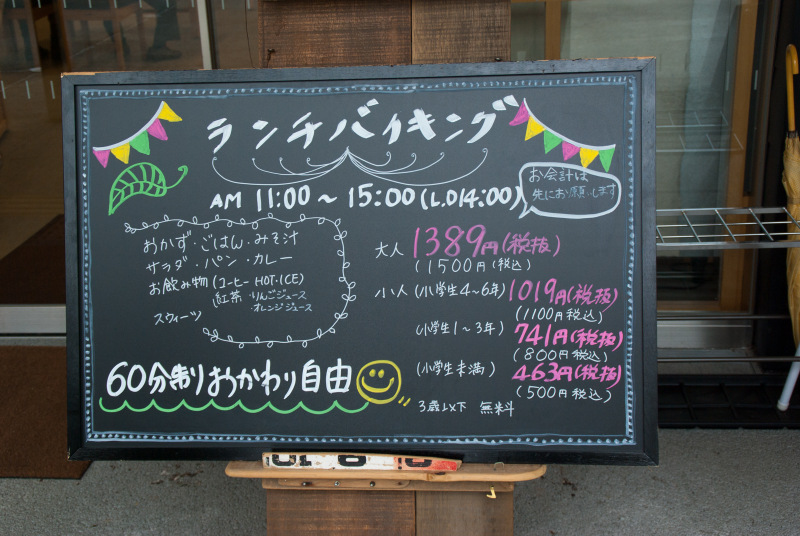 ランチバイキング
AM 11:00～15:00(L.O14:00)
お会計は
先にお願いします
おかず・ごはん・みそ汁
サラダ・パン・カレー
お飲み物(コーヒー HOT・ICE)
紅茶・りんごジュース
・オレンジジュース
スウィーツ
60分制りおかわり自由
大人 1389円(税抜)
(1500円(税込)
小人(小学生4~6年)1019円(税抜)
(1100円税込)
(小学生1~3年) 741円(税抜)
(800円税込)
(小学生未満) 463円(税抜)
(500円税込)
3歳以下 無料